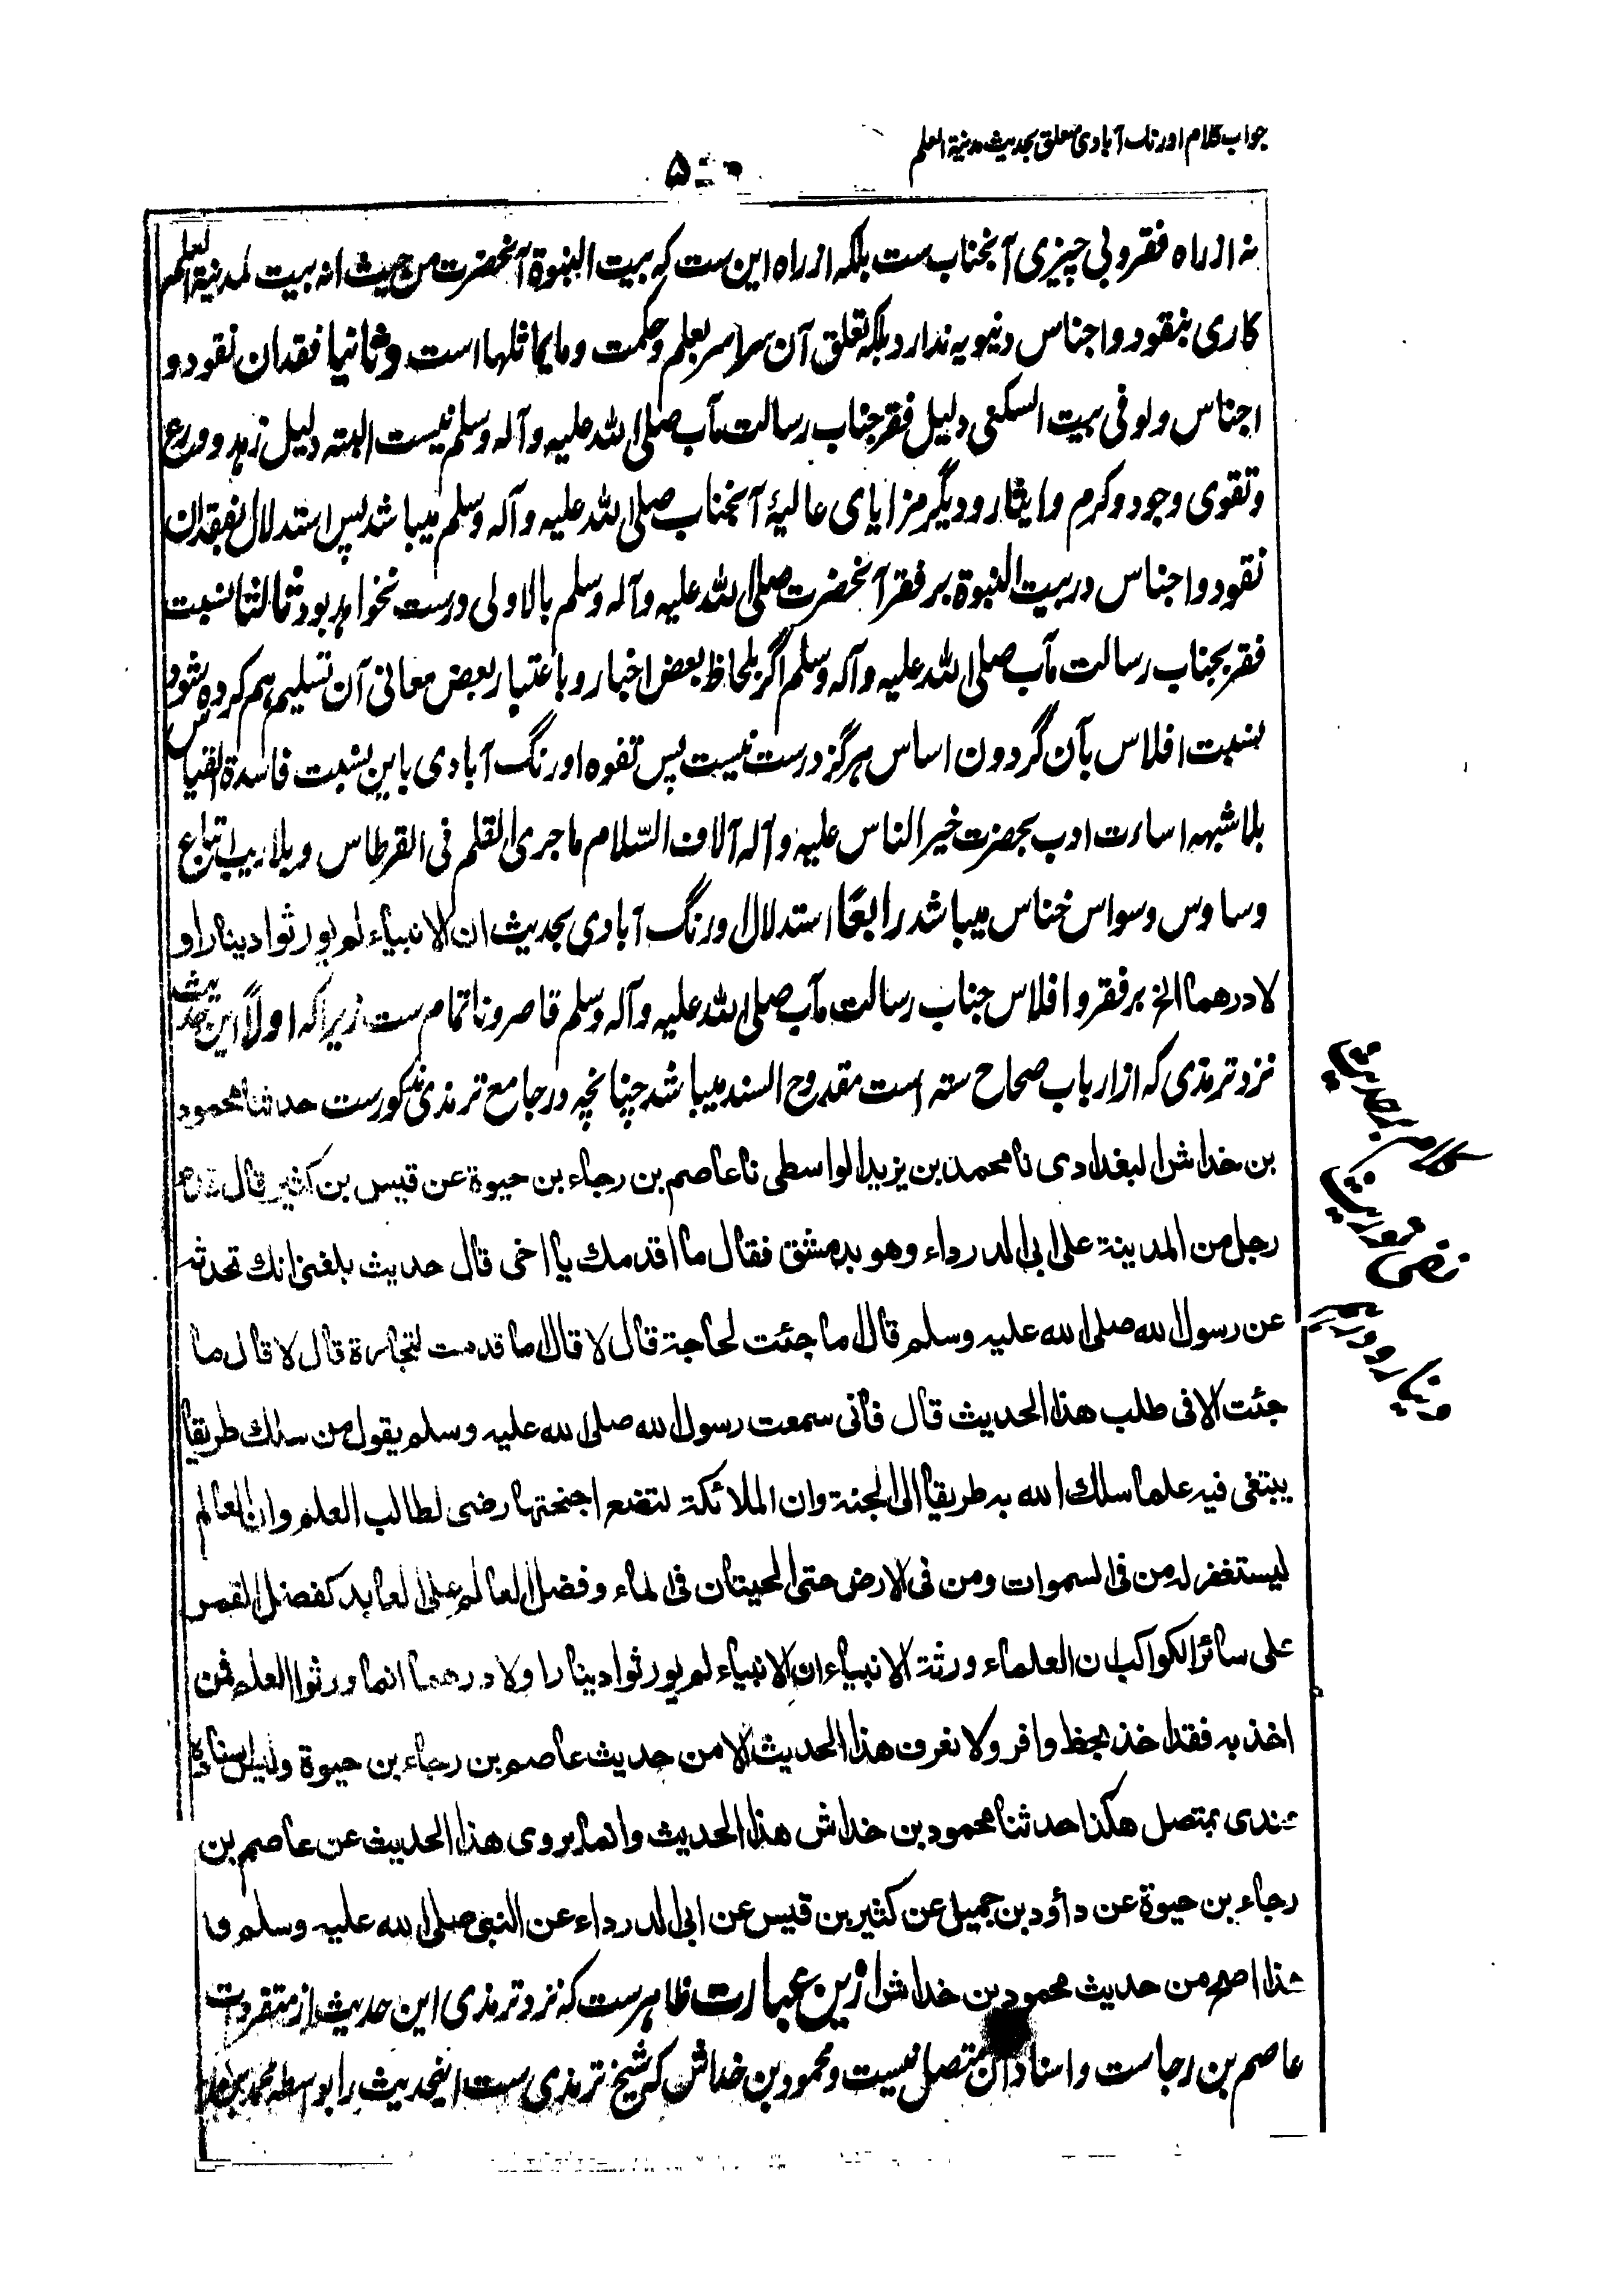 جواب کلام اورنگ آبادی متعلق بحدیث مدینة العلم
نه از راه فقر و بی چیزی آنجناب ست بلکه از راه این ست که بیت النبوة آنحضرت من حیث انه بیت لمدینة العلم
کاری بنقود و اجناس دنیویه ندارد بلکه تعلق آن سراسر بعلم و حکمت و ما یماثلها است و ثانیا فقدان نقود و
اجناس و لو فی بیت السکنی دلیل فقر جناب رسالت مآب صلی الله علیه و آله وسلم نیست البته دلیل زهد و ورع
و تقوی وجود و کرم و ایثار و دیگر مزایای عالیۀ آنجناب صلی الله علیه و آله وسلم میباشد پس استدلال بفقدان
نقود و اجناس در بیت النبوة بر فقر آنحضرت صلی الله علیه و آله وسلم بالاولی درست نخواهد بود ثالثا نسبت
فقر بجناب رسالت مآب صلی الله علیه و آله وسلم اگر بلحاظ بعض اخبار و باعتبار بعض معانی آن تسلیم هم کرده شود
نسبت افلاس بآن گردون اساس هرگز درست نیست پس تفوه اورنگ آبادی باین نسبت فاسدة القیاس
بلا شبهه اساءت ادب بحضرت خیر الناس علیه و آله آلاف السّلام ما جری القلم فی القرطاس و بلا ریب اتباع
وساوس وسواس خناس میباشد رابعًا استدلال اورنگ آبادی بحدیث ان الانبیاء لم یورثوا دینارا و
لا درهما الخ بر فقر و افلاس جناب رسالت مآب صلی الله علیه و آله وسلم قاصر و ناتمام ست زیرا که اولاً این حدیث
نزد ترمذی که از ارباب صحاح سته است مقدوح السند میباشد چنانچه در جامع ترمذی مذکورست حدثنا محمود
بن خداش البغدادی نا محمد بن یزید الواسطی نا عاصم بن رجاء بن حیوة عن قیس بن کثیر قال قدم
رجل من المدینة علی ابی الدرداء وهو بدمشق فقال ما اقدمك یا اخی قال حدیث بلغنی انك تحدثه
عن رسول الله صلی الله علیه وسلم قال ما جئت لحاجة قال لا قال ما قدمت لتجارة قال لا قال ما
جئت الا فی طلب هذا الحدیث قال فانی سمعت رسول الله صلی الله علیه وسلم یقول من سلك طریقا
یبتغی فیه علما سلك الله به طریقا الی الجنة وان الملائکة لتضع اجنحتها رضی لطالب العلم وان العالم
لیستغفر له من فی السموات ومن فی الارض حتی الحیتان فی الماء وفضل العالم علی العابد کفضل القمر
علی سائر الکواکب ان العلماء ورثة الانبیاء ان الانبیاء لم یورثوا دینارا ولا درهما انما ورثوا العلم فمن
اخذ به فقد اخذ بحظ وافر ولا نعرف هذا الحدیث الا من حدیث عاصم بن رجاء بن حیوة ولیس اسناده
عندی بمتصل هکذا حدثنا محمود بن خداش هذا الحدیث وانما یروی هذا الحدیث عن عاصم بن
رجاء بن حیوة عن داؤد بن جمیل عن کثیر بن قیس عن ابی الدرداء عن النبی صلی الله علیه وسلم و
هذا اصح من حدیث محمود بن خداش ازین عبارت ظاهرست که نزد ترمذی این حدیث از متفردات
عاصم بن رجاست و اسناد آن متصل نیست و محمود بن خداش که شیخ ترمذی ست اینحدیث را بواسطه محمد بن
کلام بر حدیث
نفی توریث
دینار و درهم